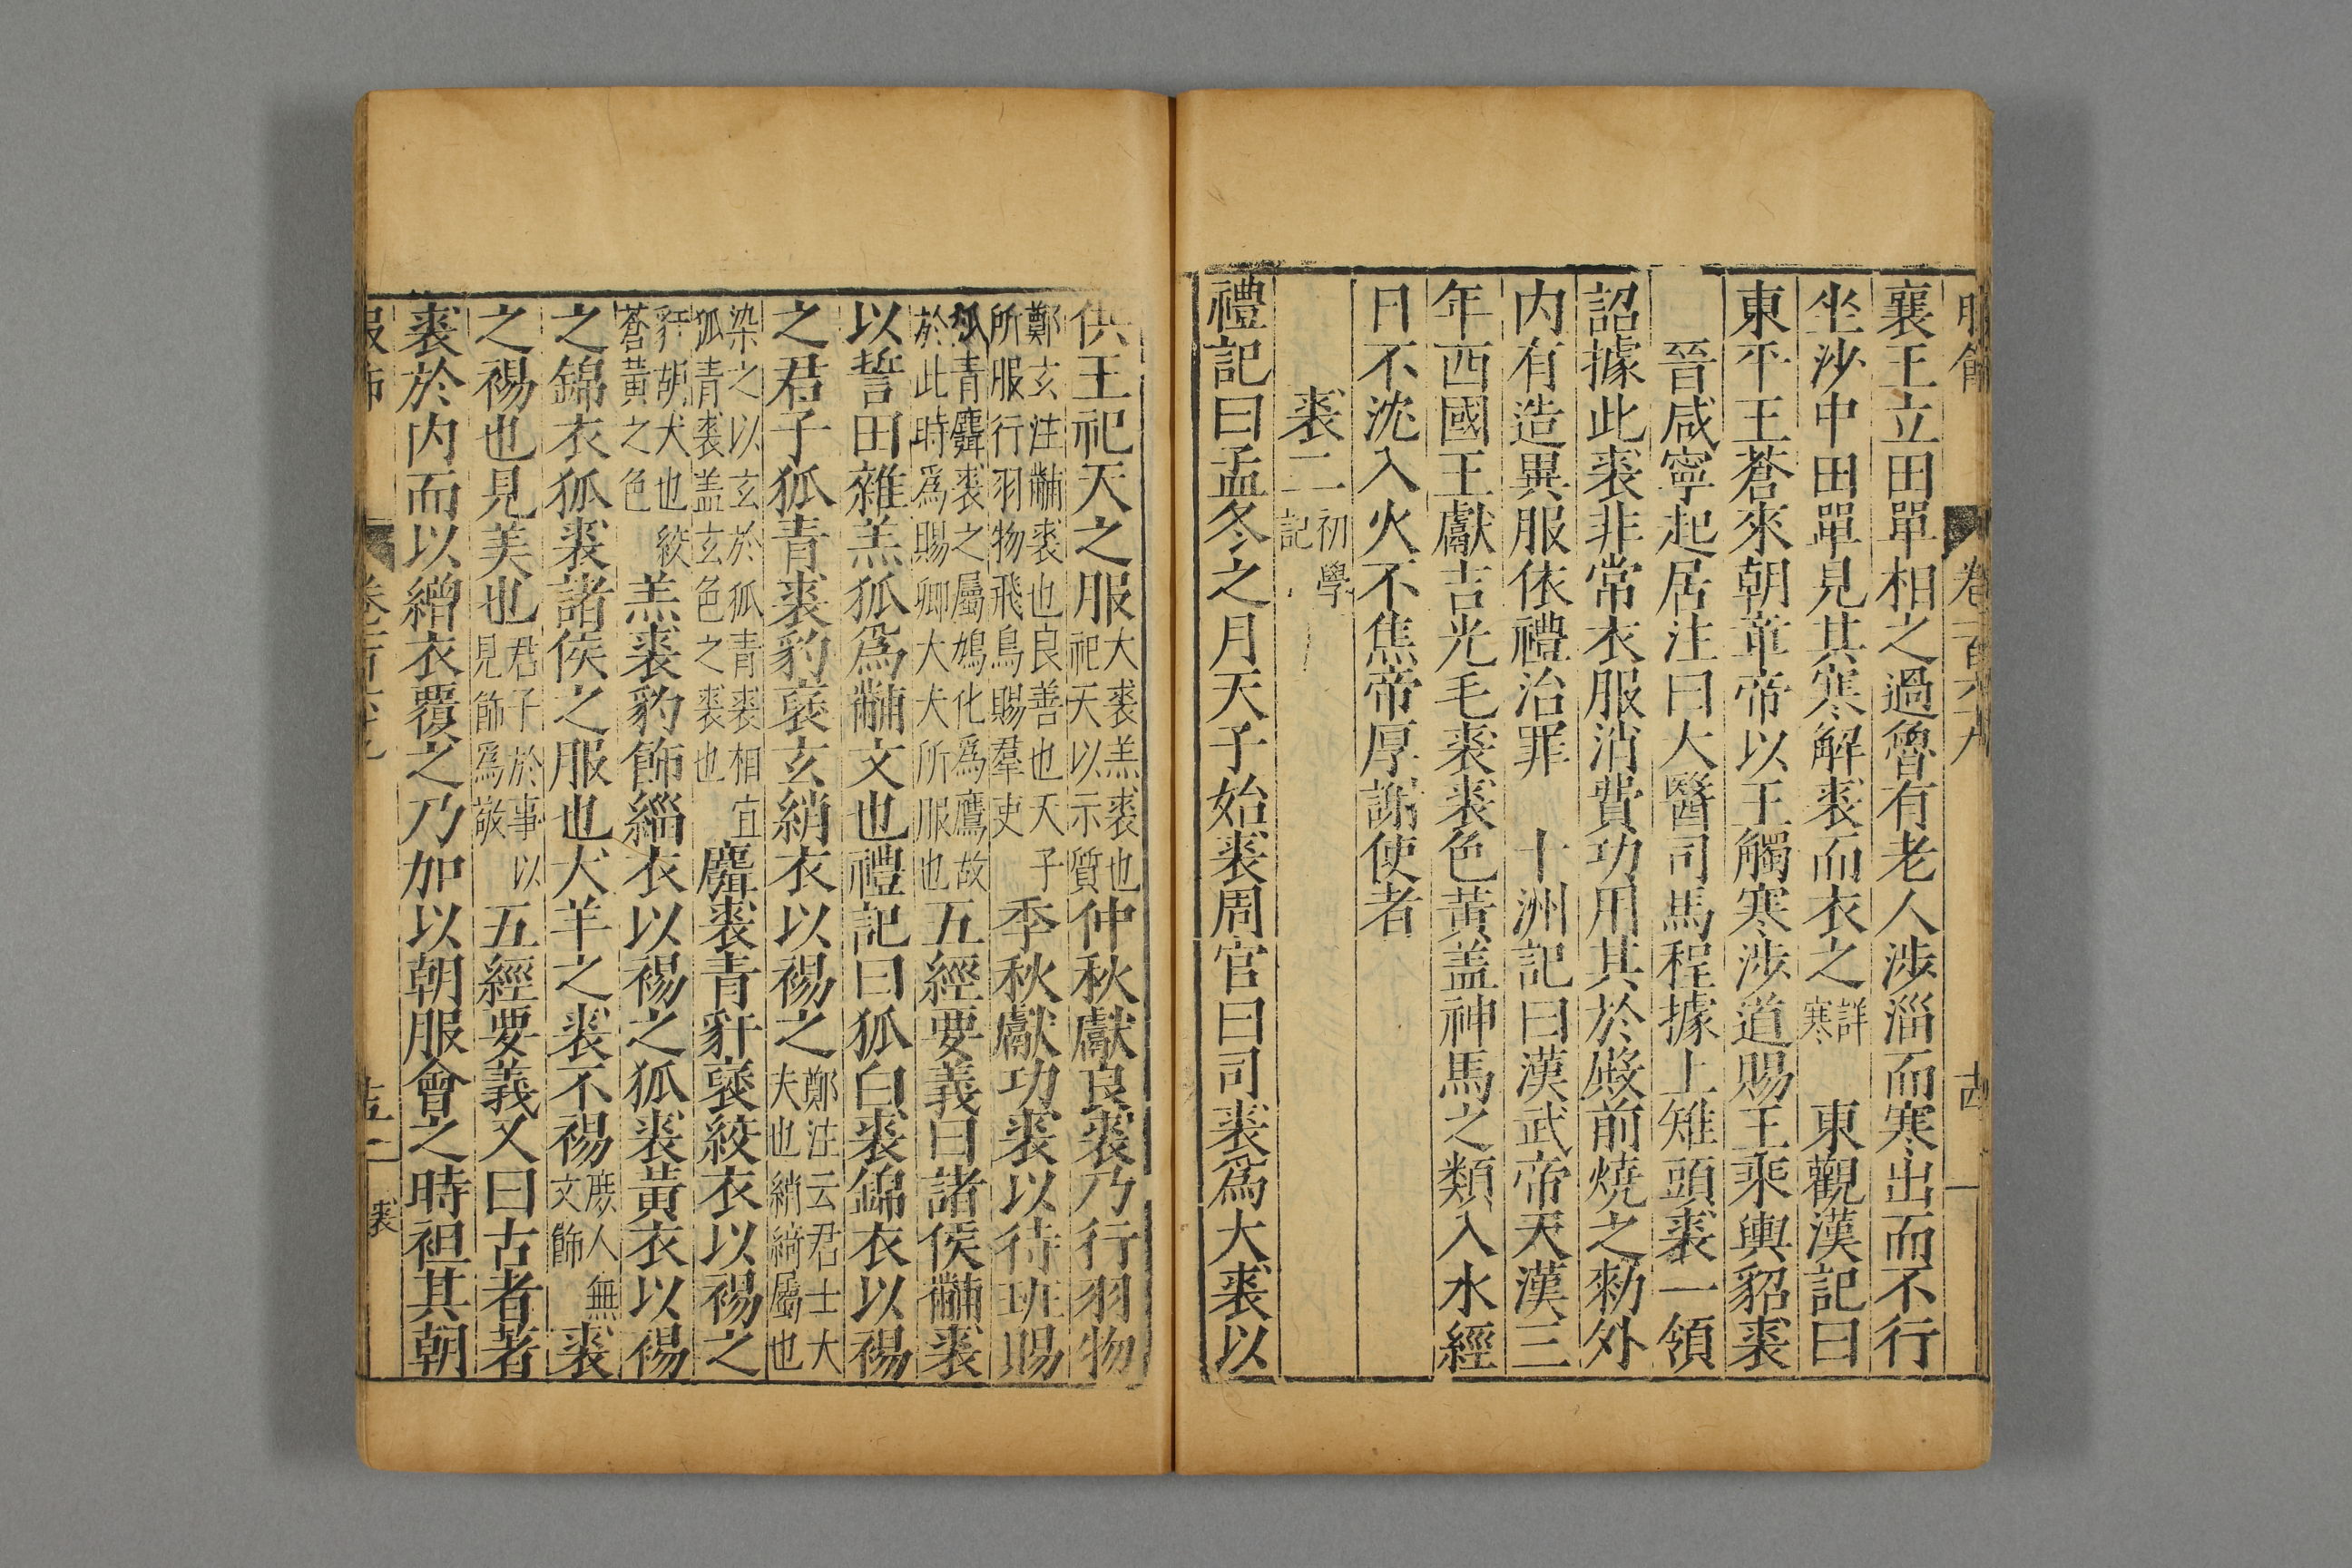 襄王立田單相之過魯有老人涉淄而寒出而不行
坐沙中田單見其寒解裘而衣之詳寒　東觀漢記曰
東平王蒼來朝章帝以王觸寒涉道賜王乘輿貂裘
晉咸寧起居注曰大醫司馬程據上雉頭裘一領
詔據此裘非常衣服消費功用其於殿前燒之勑外
内有造異服依禮治罪　十洲記曰漢武帝天漢三
年西國王獻吉光毛裘裘色黃盖神馬之類入水經
日不沈入火不焦帝厚謝使者
裘二初學記
禮記曰孟冬之月天子始裘周官曰司裘爲大裘以
供王祀天之服大裘羔裘也祀天以示質仲秋獻良裘乃行羽物
鄭玄注黼裘也良善也天子所服行羽物飛鳥賜羣吏季秋獻功裘以待班賜
狐青麛裘之屬鳩化爲鷹故於此時爲賜卿大夫所服也五經要義曰諸侯黼裘
以誓田雜羔狐爲黼文也禮記曰狐白裘錦衣以裼
之君子狐青裘豹褎玄綃衣以裼之鄭注云君士大夫也綃綺屬也
染之以玄於狐青裘相宜狐青裘盖玄色之裘也麛裘青豻褎絞衣以裼之
豻胡犬也絞蒼黃之色羔裘豹飾緇衣以裼之狐裘黃衣以裼
之錦衣狐裘諸侯之服也犬羊之裘不裼庶人無文飾裘
之裼也見美也君子於事以見飾爲敬五經要義又曰古者著
裘於内而以繒衣覆之乃加以朝服會之時袒其朝
裘